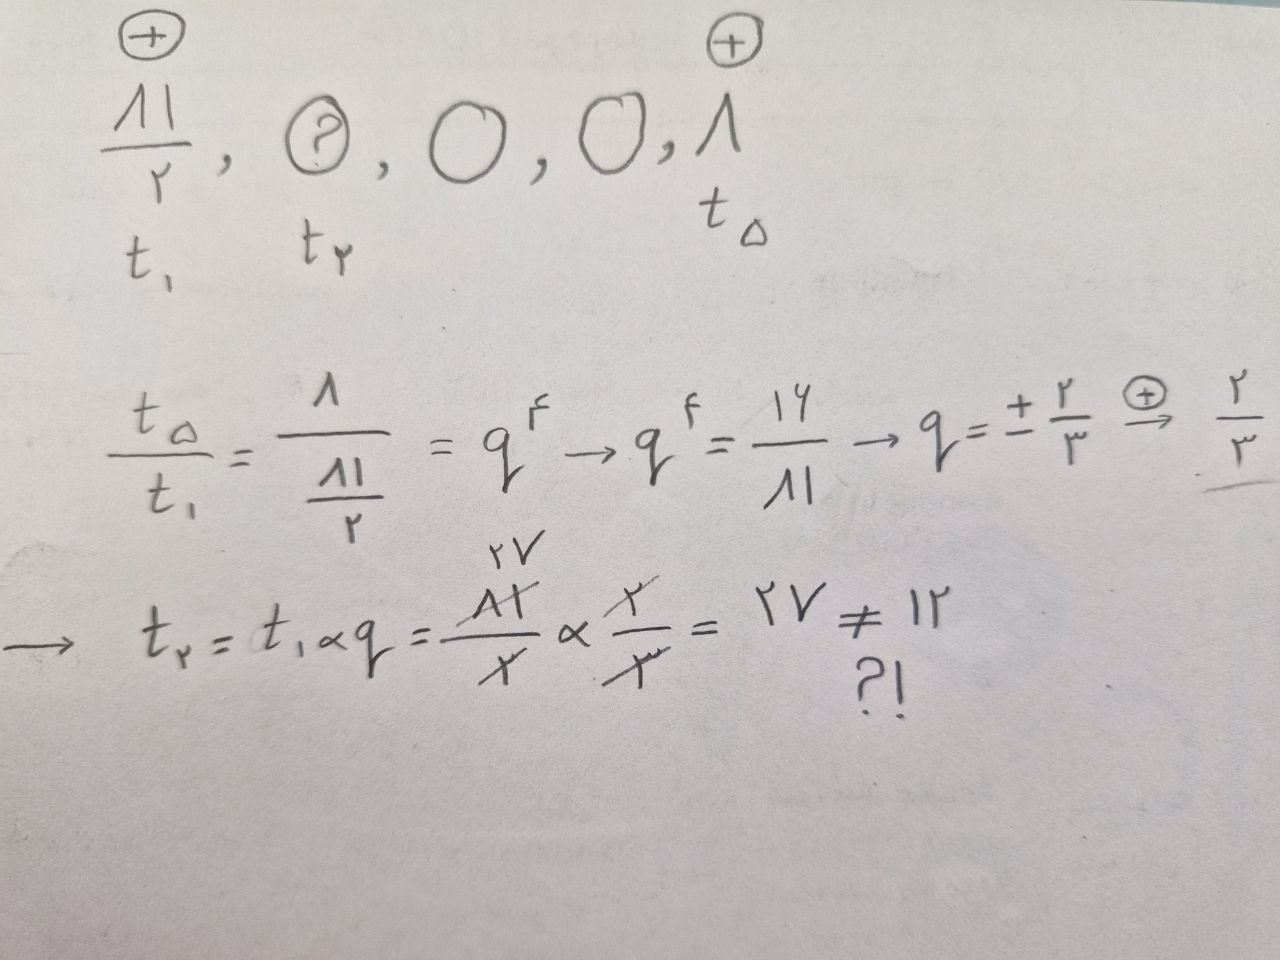 ⊕ ⊕
۸۱/۲ , ? , ○ , ○ , ۸
t۱ t۲ t۵
t۵/t۱ = ۸/(۸۱/۲) = q^۴ → q^۴ = ۱۶/۸۱ → q = ± ۲/۳ ⊕→ ۲/۳
۲۷
→ t۲ = t۱ × q = ۸۱/۲ × ۲/۳ = ۲۷ ≠ ۱۲
?!